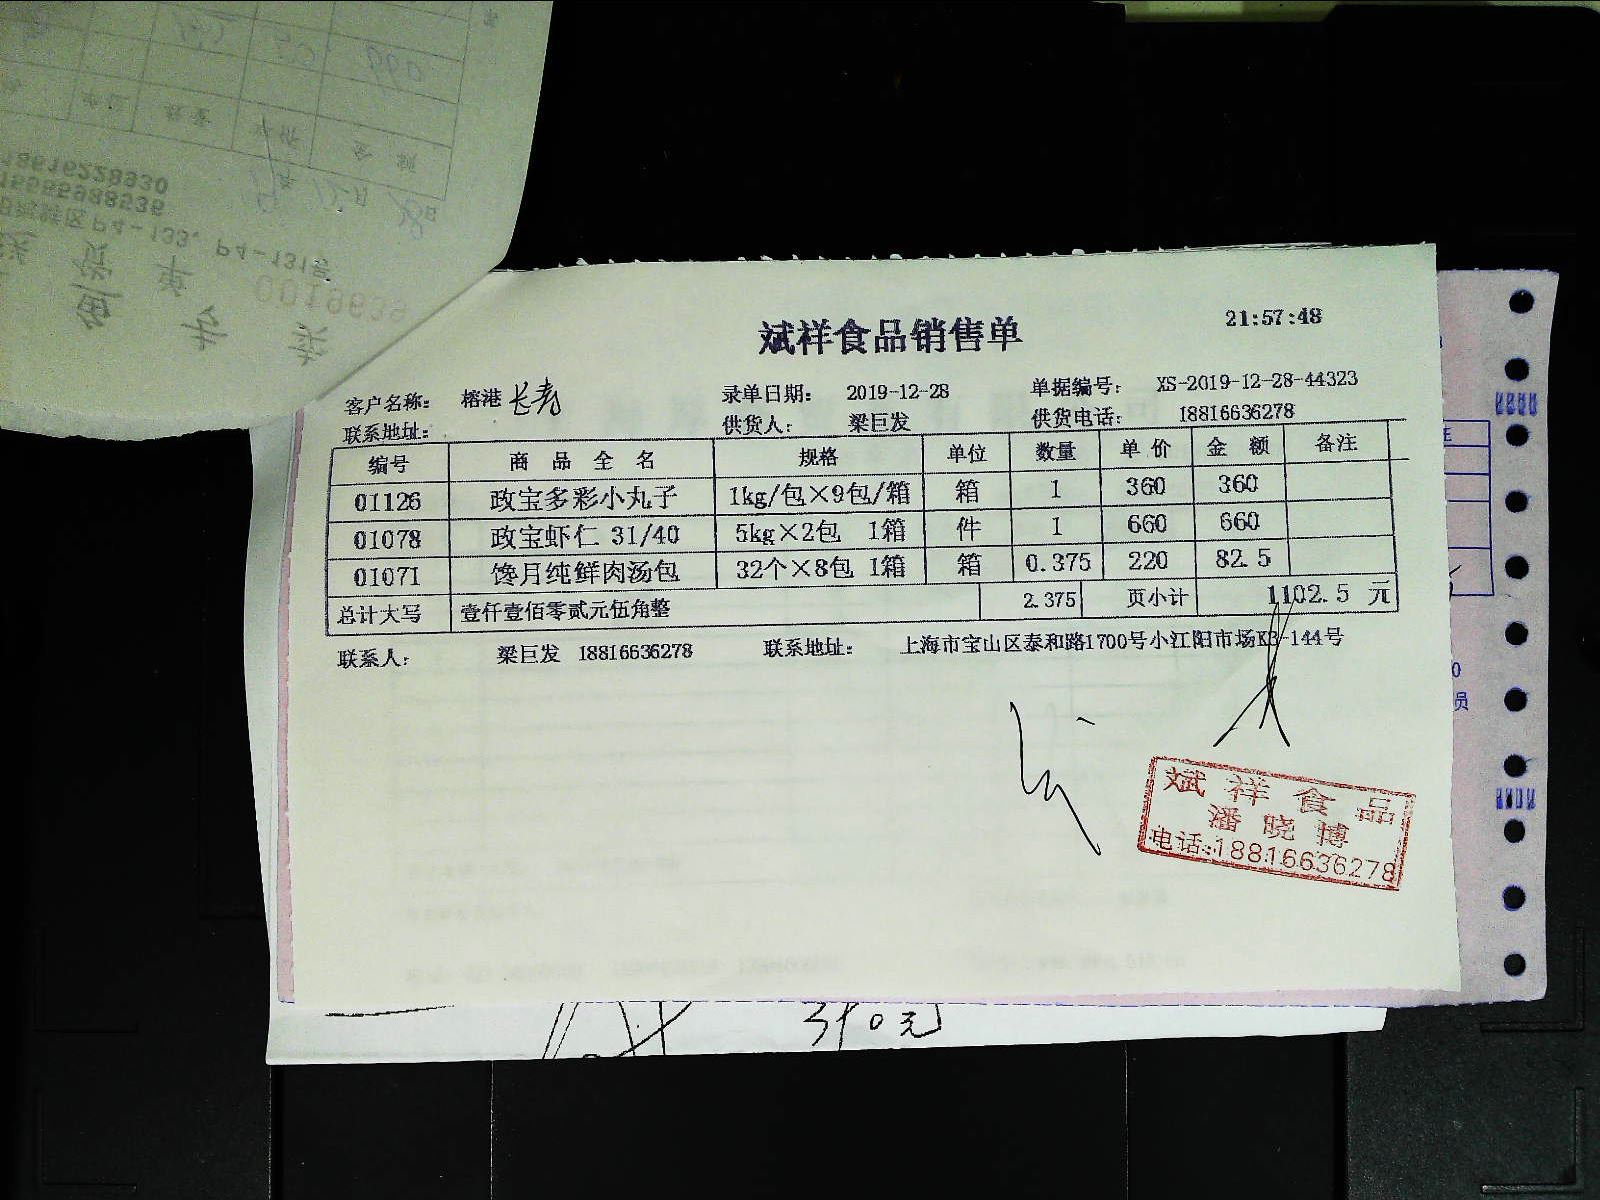 斌祥食品销售单
21:57:48
客户名称： 榕港 长寿 录单日期： 2019-12-28 单据编号： XS-2019-12-28-44323
联系地址： 供货人： 梁巨发 供货电话： 18816636278
编号 商品全名 规格 单位 数量 单价 金额 备注
01126 政宝多彩小丸子 1kg/包×9包/箱 箱 1 360 360
01078 政宝虾仁 31/40 5kg×2包 1箱 件 1 660 660
01071 馋月纯鲜肉汤包 32个×8包 1箱 箱 0.375 220 82.5
总计大写 壹仟壹佰零贰元伍角整 2.375 页小计 1102.5 元
联系人： 梁巨发 18816636278 联系地址： 上海市宝山区泰和路1700号小江阳市场K3-144号
斌祥食品
潘晓博
电话:18816636278
鱼 专 卖
送 货 单
P4-133、P4-131号
15555988536
18616228930
年 12月 28日
单位 数量 单价 金额
660
员